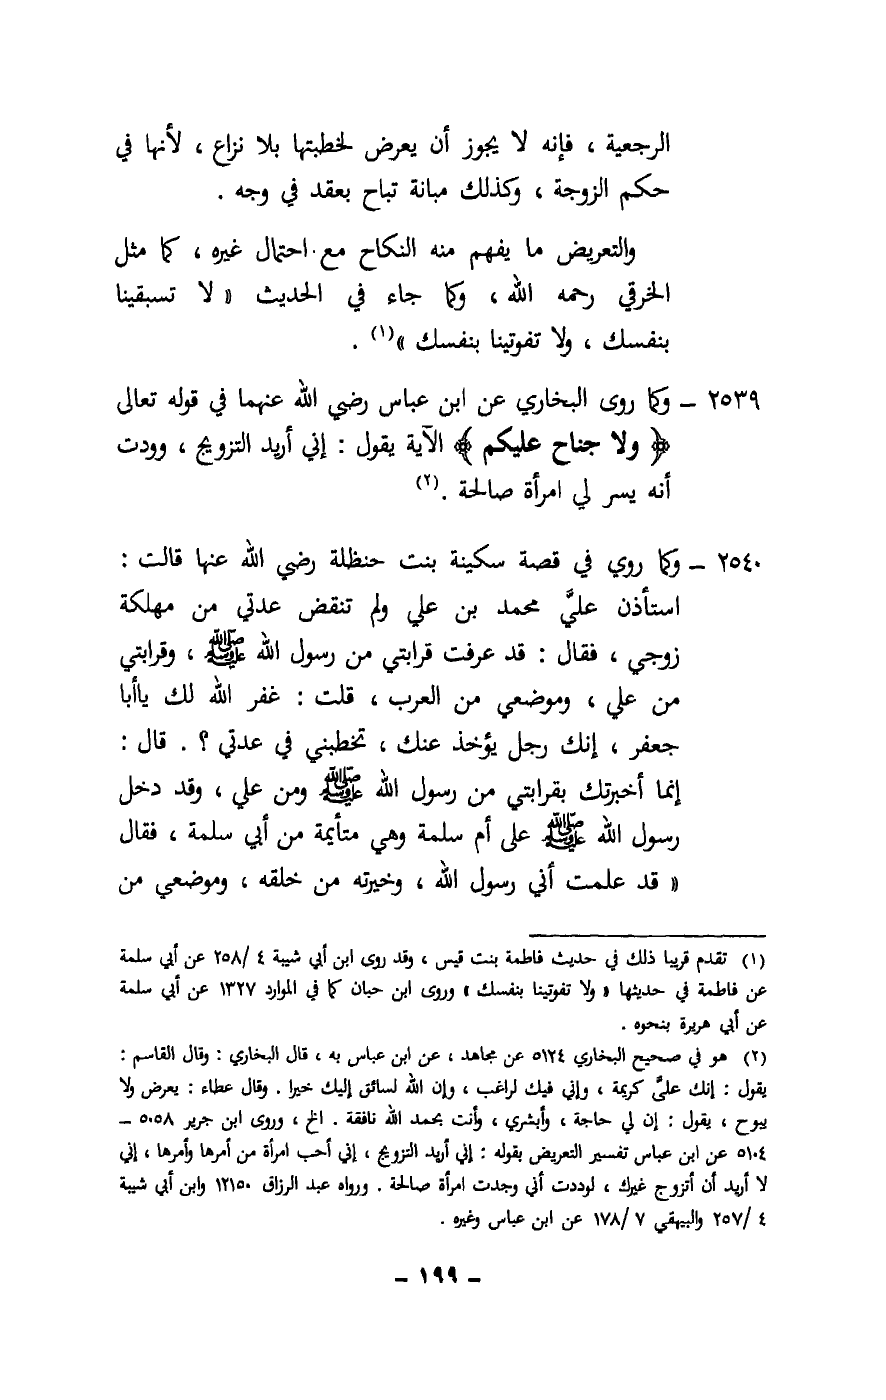 الرجعية ، فإنه لا يجوز أن يعرض لخطبتها بلا نزاع ، لأنها في
حكم الزوجة ، وكذلك مبانة تباح بعقد في وجه .
والتعريض ما يفهم منه النكاح مع احتمال غيره ، كما مثل
الخرقي رحمه الله ، وكما جاء في الحديث « لا تسبقينا
بنفسك ، ولا تفوتينا بنفسك »(١) .
٢٥٣٩ – وكما روى البخاري عن ابن عباس رضي الله عنهما في قوله تعالى
﴿ ولا جناح عليكم ﴾ الآية يقول : إني أريد التزويج ، وودت
أنه يسر لي امرأة صالحة .(٢)
٢٥٤٠ – وكما روي في قصة سكينة بنت حنظلة رضي الله عنها قالت :
استأذن عليَّ محمد بن علي ولم تنقض عدتي من مهلكة
زوجي ، فقال : قد عرفت قرابتي من رسول الله ﷺ ، وقرابتي
من علي ، وموضعي من العرب ، قلت : غفر الله لك ياأبا
جعفر ، إنك رجل يؤخذ عنك ، تخطبني في عدتي ؟ . قال :
إنما أخبرتك بقرابتي من رسول الله ﷺ ومن علي ، وقد دخل
رسول الله ﷺ على أم سلمة وهي متأيمة من أبي سلمة ، فقال
« قد علمت أني رسول الله ، وخيرته من خلقه ، وموضعي من
(١) تقدم قريبا ذلك في حديث فاطمة بنت قيس ، وقد روى ابن أبي شيبة ٤ /٢٥٨ عن أبي سلمة
عن فاطمة في حديثها « ولا تفوتينا بنفسك » وروى ابن حبان كما في الموارد ١٣٢٧ عن أبي سلمة
عن أبي هريرة بنحوه .
(٢) هو في صحيح البخاري ٥١٢٤ عن مجاهد ، عن ابن عباس به ، قال البخاري : وقال القاسم :
يقول : إنك عليَّ كريمة ، وإني فيك لراغب ، وإن الله لسائق إليك خيرا . وقال عطاء : يعرض ولا
يبوح ، يقول : إن لي حاجة ، وأبشري ، وأنت بحمد الله نافقة . الخ ، وروى ابن جرير ٥٠٥٨ –
٥١٠٤ عن ابن عباس تفسير التعريض بقوله : إني أريد التزويج ، إني أحب امرأة من أمرها وأمرها ، إني
لا أريد أن أتزوج غيرك ، لوددت أني وجدت امرأة صالحة . ورواه عبد الرزاق ١٢١٥٠ وابن أبي شيبة
٤ /٢٥٧ والبيهقي ٧ /١٧٨ عن ابن عباس وغيره .
– ١٩٩ –